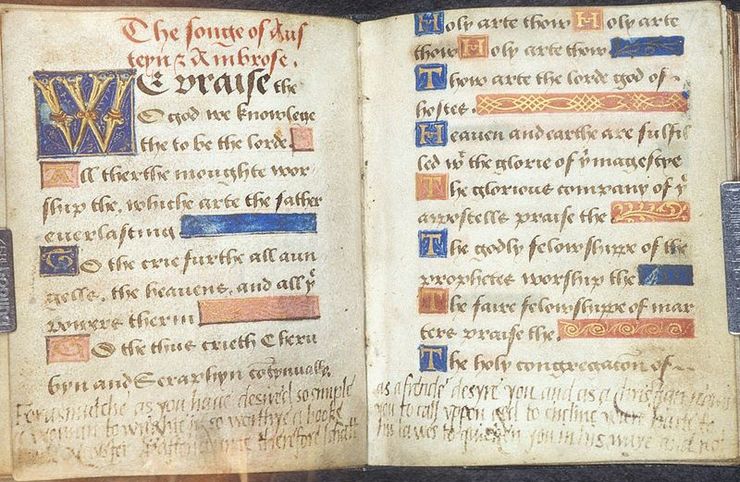 The songe of Aus
teyn & Ambrose.
WE praise the
O god we knowlege
the to be the lorde
All the erthe moughte wor
ship the, whiche arte the father
everlasting
TO the crie furthe all aun
gells, the heavens, and all yͤ
powers therin
TO the thus crieth Cheru
byn and Seraphyn contynually
Forasmutche as you have desired so simple
a woman to wrighte in so worthye a booke
good Mayster therefore
Holy arte thow Holy arte
thow Holy arte thow
Thow arte the lorde god of
hostes
Heaven and earthe are fulfil
led wͭ the glorie of yͥ magestye
The glorious company of yͤ
appostells praise the
The godly felowshippe of the
prophetes worship the
The faire felowshippe of mar
ters praise the
The holy congregacion of
as a frende desyre you and as a christian require
you to call uppon god to encline youre harte to
his lawes to quicken you in his waye and not